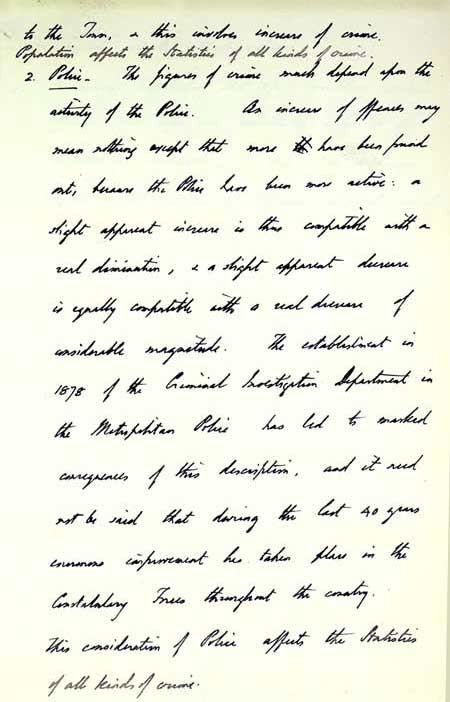 to the Town, & this involves increase of crime.
Population affects the Statistics of all kinds of crime.
2. Police - The figures of crime much depend upon the
activity of the Police. An increase of offences may
mean nothing except that more have been found
out, because the Police have been more active: a
slight apparent increase is thus compatible with a
real diminution, & a slight apparent decrease
is equally compatible with a real decrease of
considerable magnitude. The establishment in
1878 of the Criminal Investigation Department in
the Metropolitan Police has led to marked
consequences of this description, and it need
not be said that during the last 40 years
enormous improvement has taken place in the
Constabulary Forces throughout the country.
This consideration of Police affects the Statistics
of all kinds of crime.